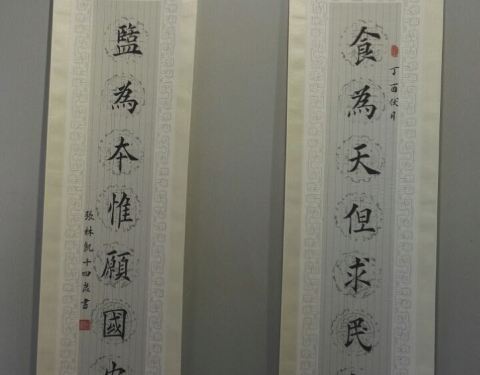 食為天但求民
丁酉伏月
鹽為本惟願國
張林凱十四歲書